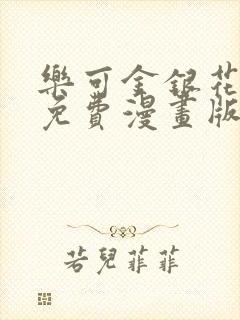 樂可金銀花
免費漫畫版
若兒菲菲